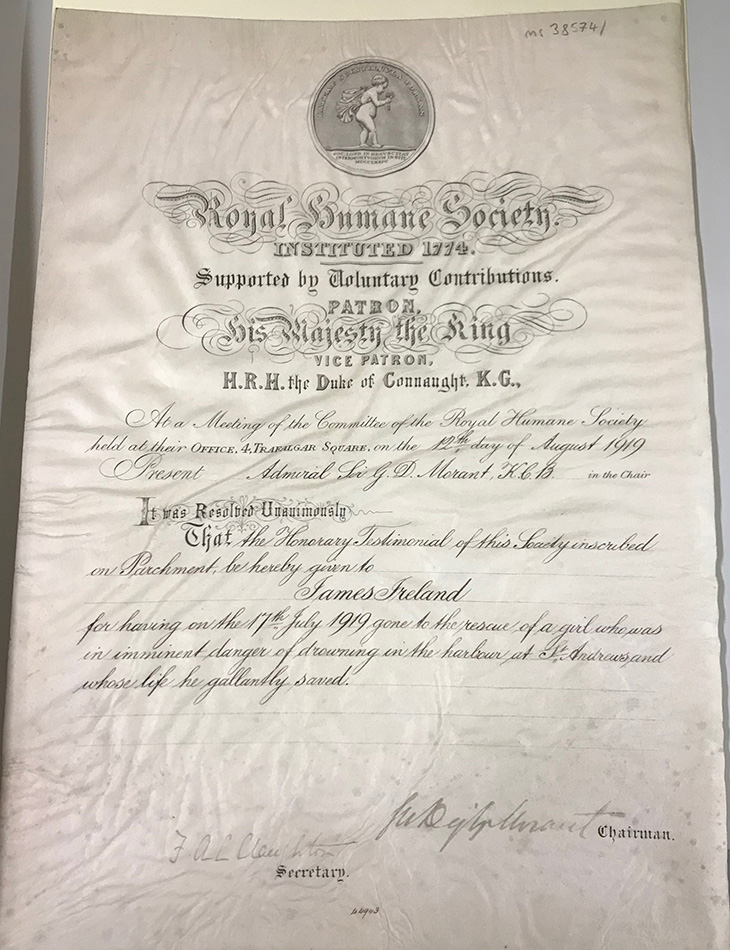 ms 38574/
LATEAT SCINTILLVLA FORSAN
Royal Humane Society.
INSTITUTED 1774.
Supported by Voluntary Contributions.
PATRON,
His Majesty the King
VICE PATRON,
H.R.H. the Duke of Connaught, K.G.,
At a Meeting of the Committee of the Royal Humane Society
held at their OFFICE, 4, TRAFALGAR SQUARE, on the 12th day of August 1919
Present Admiral Sir G. D. Morant, K.C.B. in the Chair
It was Resolved Unanimously
That the Honorary Testimonial of this Society inscribed
on Parchment, be hereby given to
James Ireland
for having on the 17th July 1919 gone to the rescue of a girl who was
in imminent danger of drowning in the harbour, at St. Andrews, and
whose life he gallantly saved.
Chairman.
F A C Claughton
Secretary.
44903